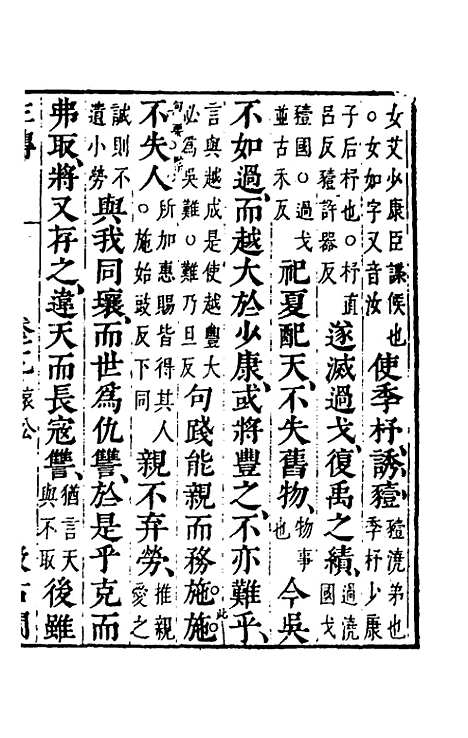 女艾少康臣諜候也
○女如字又音汝
使季杼誘豷
豷澆弟也
季杼少康
子后杼也○杼直
呂反豷許器反
遂滅過戈復禹之績
過澆
國戈
豷國○過戈
並古禾反
祀夏配天不失舊物
物事
也
今吳
不如過而越大於少康或將豐之不亦難乎
言與越成是使越豐大
必爲吳難○難乃旦反
句踐能親而務施施
此
不失人
所加惠賜皆得其人
○施始豉反下同
親不弃勞
推親
愛之
誠則不
遺小勞
與我同壤而世爲仇讐於是乎克而
弗取將又存之違天而長寇讐
猶言天
與不取
後雖